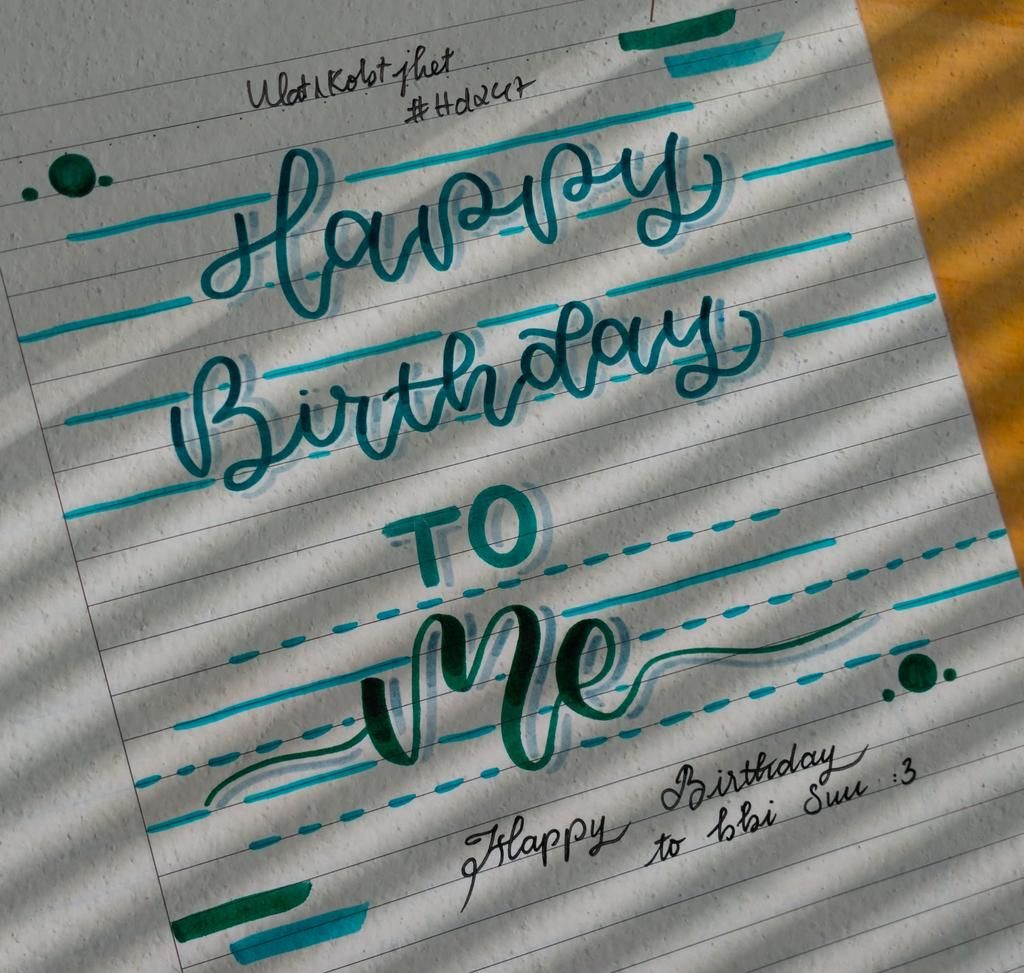 #Hd247
Happy
Birthday
TO
Me
Happy Birthday
to bbi Suu :3